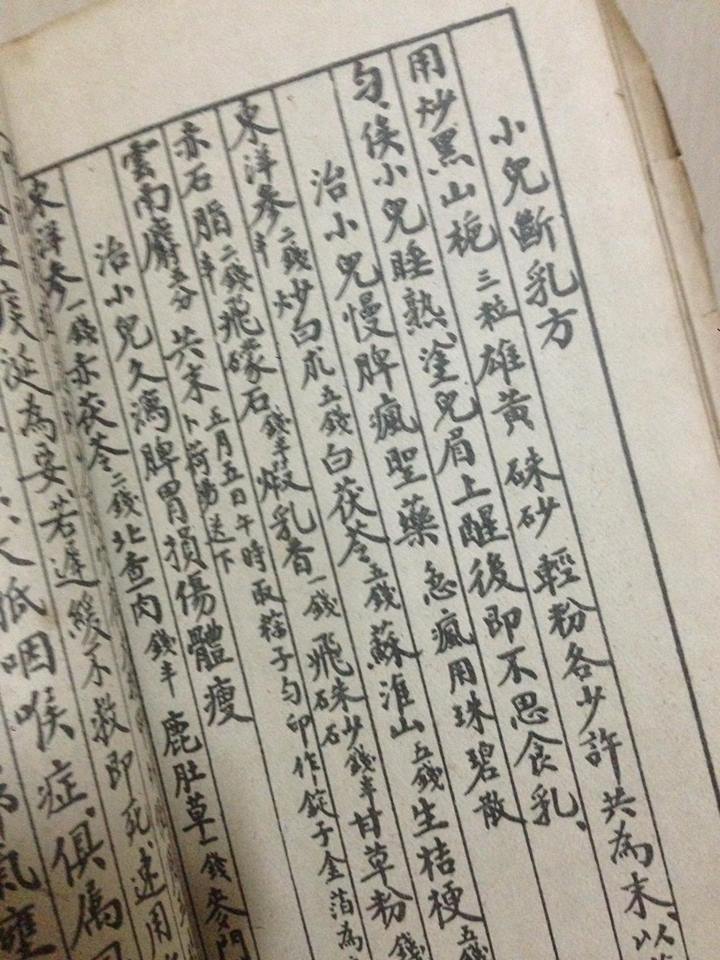 小兒斷乳方
用炒黑山梔三粒雄黃硃砂輕粉各少許共為末以
勻俟小兒睡熟塗兒眉上醒後即不思食乳
治小兒慢脾瘋聖藥急瘋用珠碧散
東洋參二錢半炒白朮五錢白茯苓五錢蘇淮山五錢生桔梗五錢
赤石脂二錢半飛礞石錢半煆乳香一錢飛硃砂錢半甘草粉錢
雲南麝五分共末卜荷湯送下五月五日午時取粽子勻印作錠子金箔為
治小兒久瀉脾胃損傷體瘦
東洋參一錢赤茯苓二錢北查肉錢半鹿肚草一錢麥門
痰涎為要若遲緩不救即死速用
咽喉症俱屬